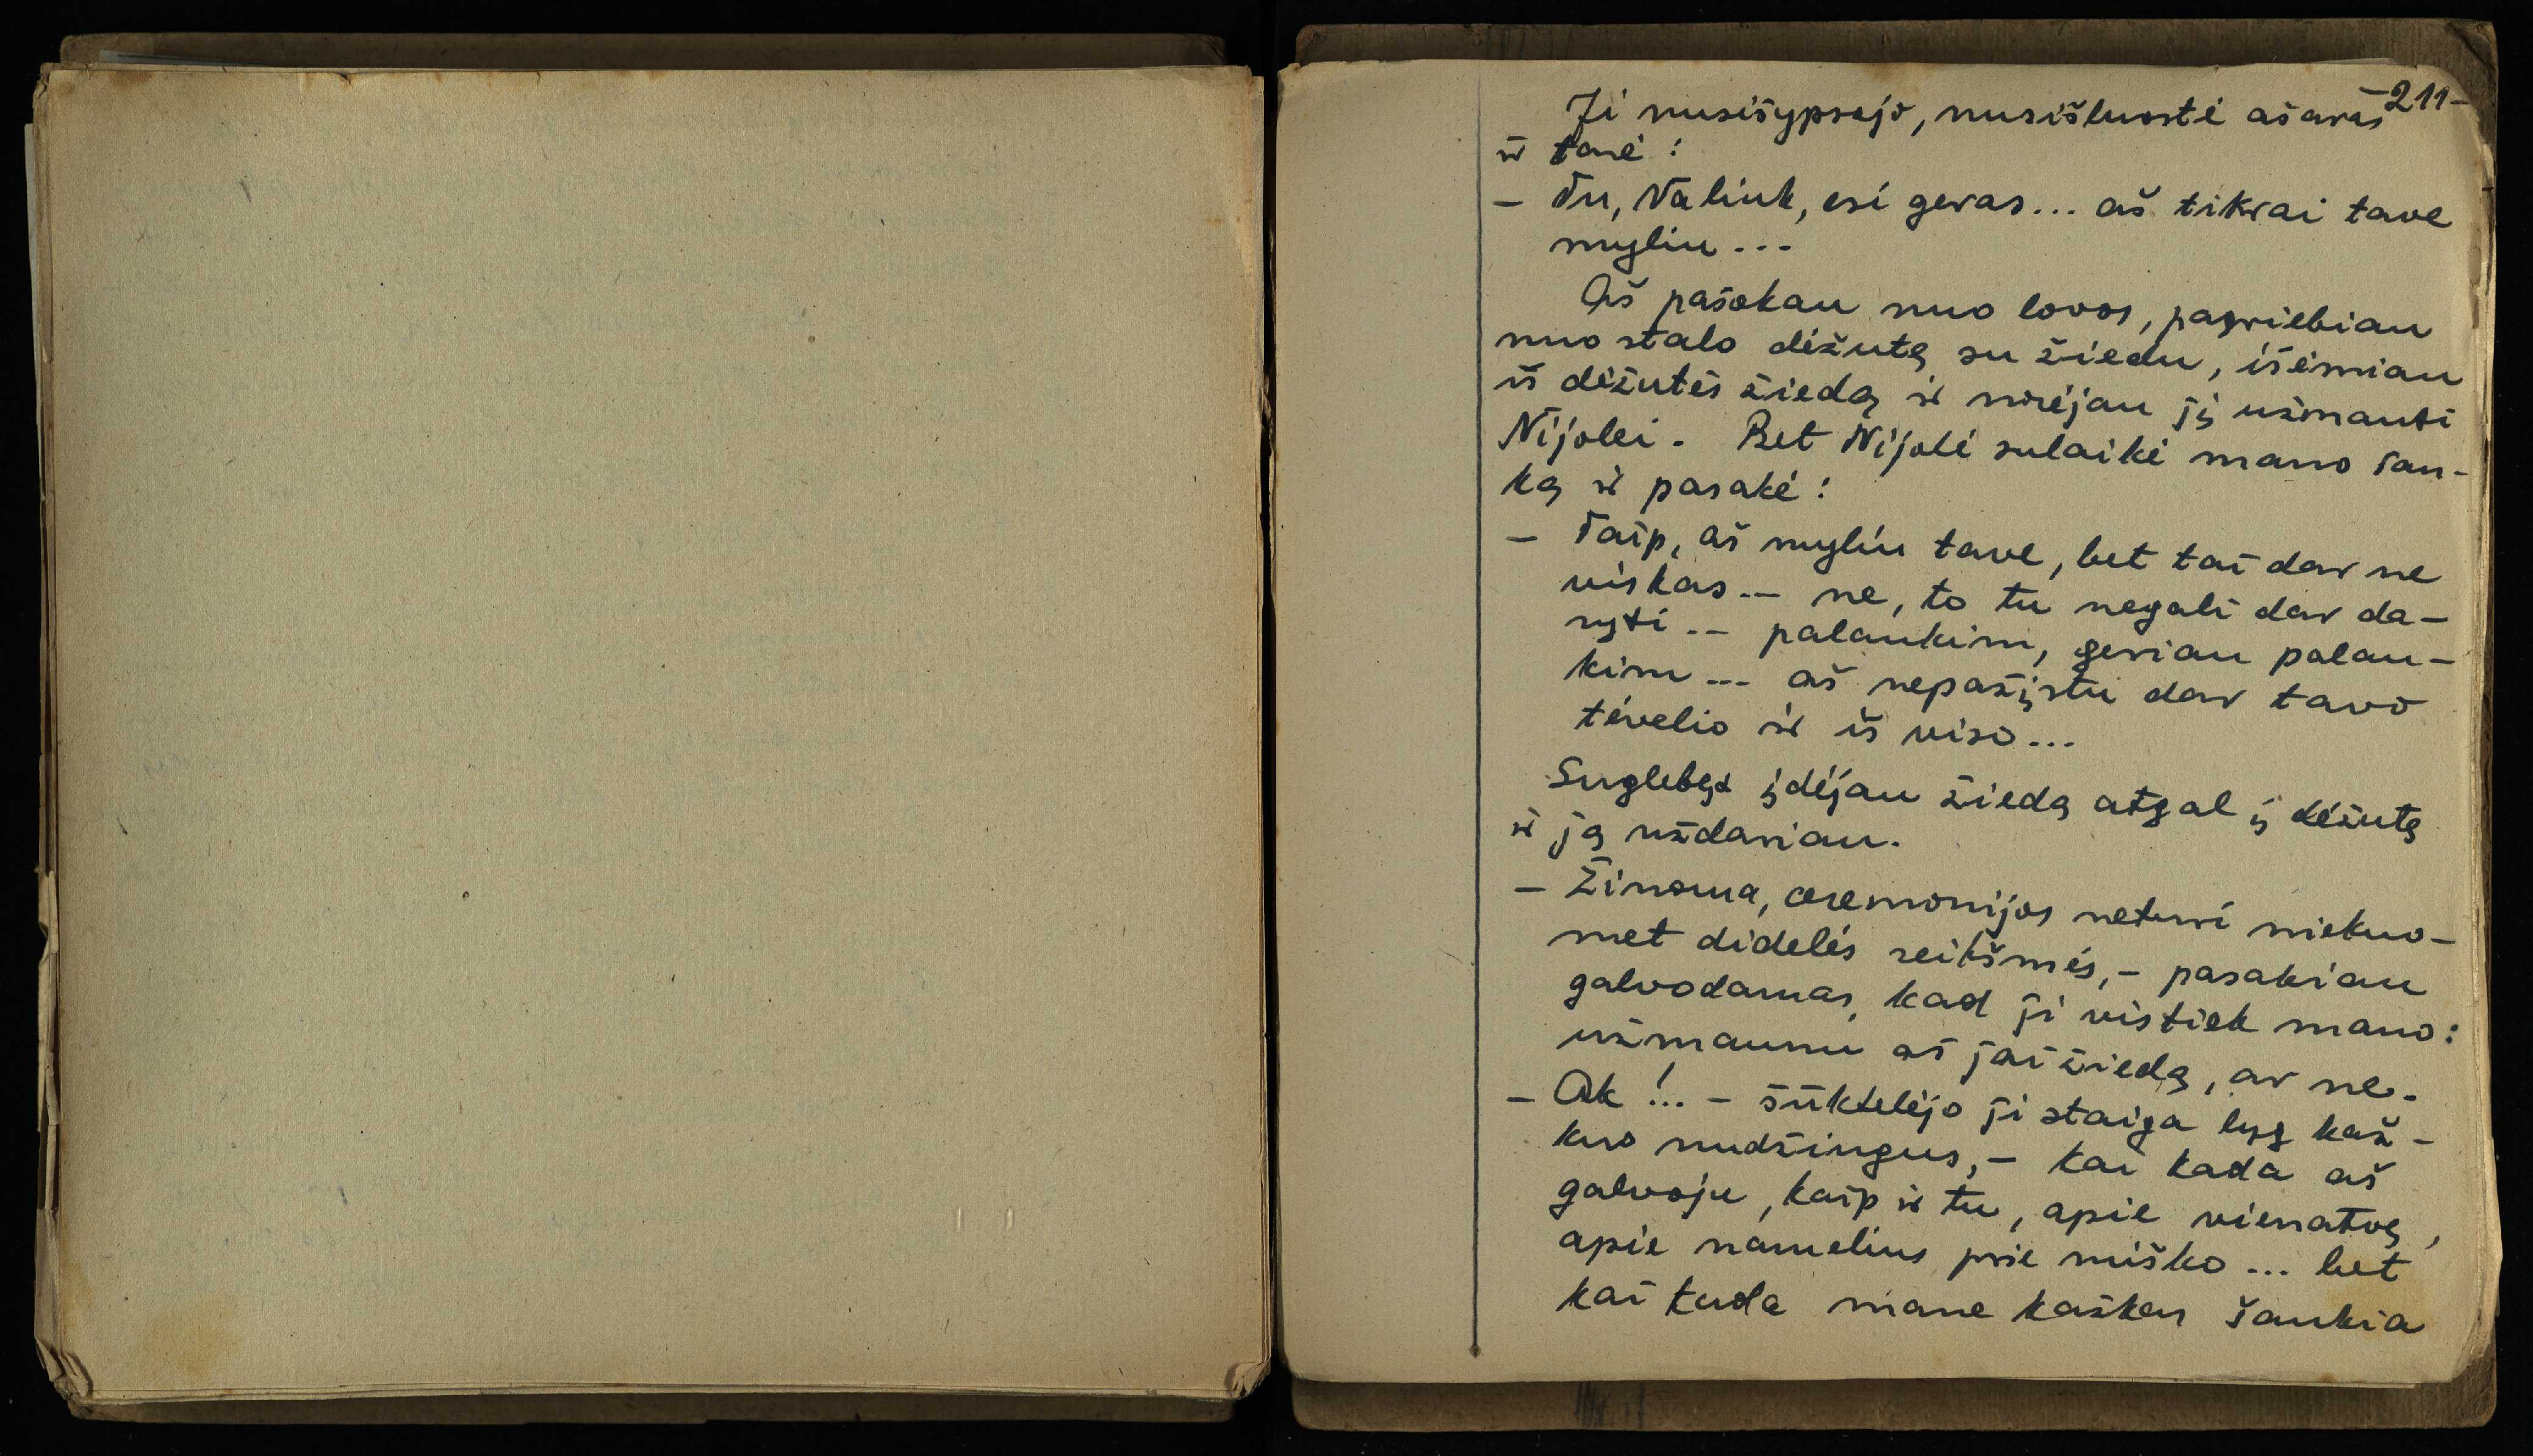 -211-
Ji nusišypsojo, nusišluostė ašaras
ir tarė:
- Tu, Valiuk, esi geras... aš tikrai tave
myliu...
Aš pašokau nuo lovos, pagriebiau
nuo stalo dėžutę su žiedu, išėmiau
iš dėžutės žiedą ir norėjau jį užmauti
Nijolei. Bet Nijolė sulaikė mano ran-
ką ir pasakė:
- Taip, aš myliu tave, bet tai dar ne
viskas... ne, to tu negali dar da-
ryti... palaukim, geriau palau-
kim... aš nepažįstu dar tavo
tėvelio ir iš viso...
Suglebęs įdėjau žiedą atgal į dėžutę
ir ją uždariau.
- Žinoma, ceremonijos neturi niekuo-
met didelės reikšmės, - pasakiau
galvodamas, kad ji vistiek mano:
užmaunu aš jai žiedą, ar ne.
- Ak!... - šūktelėjo ji staiga lyg kaž-
kuo nudžiugus, - kai kada aš
galvoju, kaip ir tu, apie vienatvę,
apie namelius prie miško... bet
kai kada mane kažkas šaukia